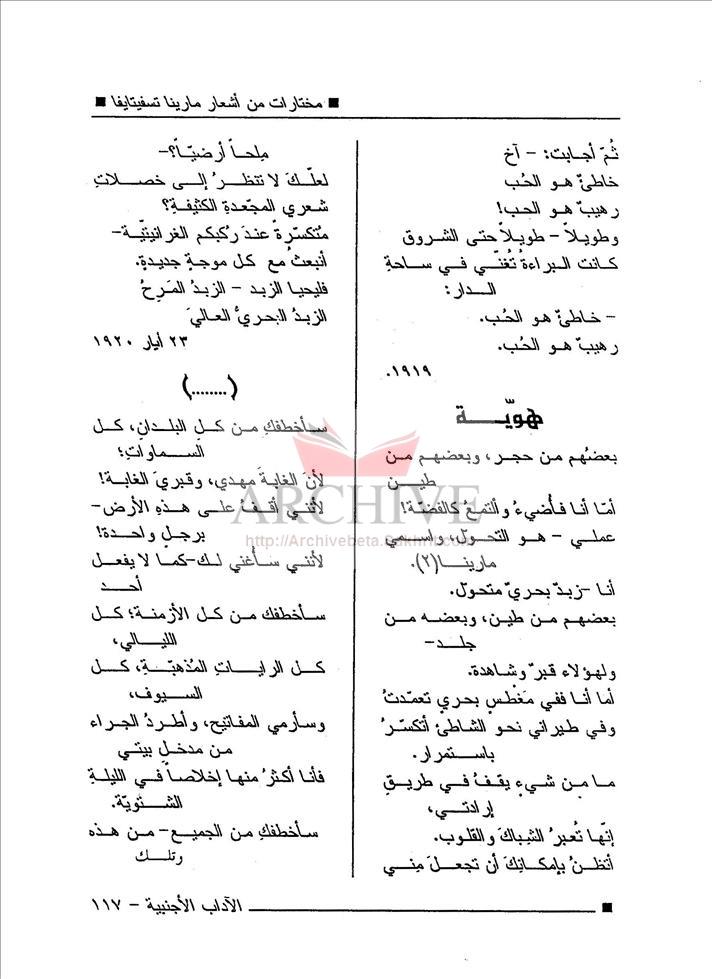 ■ مختارات من أشعار مارينا تسفيتايفا ■
ثُمّ أجابت: - آخ
خاطئٌ هو الحُب
رهيبٌ هو الحب!
وطويلاً - طويلاً حتى الشروق
كانت البراءةُ تُغنّي في ساحةِ
الدار:
- خاطئٌ هو الحُب.
رهيبٌ هو الحُب.
١٩١٩.
هويّة
بعضُهم من حجر، وبعضهم من
طين
أمّا أنا فأُضيءُ وألتمعُ كالفضّة!
عملي - هو التحوّل، واسمي
مارينا(٢).
أنا -زبدٌ بحريّ متحوّل.
بعضهم من طين، وبعضه من
جلد-
ولهؤلاء قبرٌ وشاهدة.
أما أنا ففي مَغْطسٍ بحري تعمّدتُ
وفي طيراني نحو الشاطئ أتكسّرُ
باستمرار.
ما من شيءٍ يقفُ في طريقِ
إرادتي،
إنّها تُعبرُ الشِباكَ والقلوب.
أتظنُ بإمكانِكَ أن تجعلَ مِني
مِلحاً أرضيّاً؟-
لعلّكَ لا تنظرُ إلى خصلاتِ
شعري المجّعدةِ الكثيفةِ؟
مُتكسّرةً عندَ رُكبكم الغرانيتيّة-
أنبعثُ مع كل موجةٍ جديدةٍ.
فليحيا الزبد - الزبدُ المَرِحُ
الزبدُ البحريُّ العالي
٢٣ أيار ١٩٢٠
(........)
سأخطفكِ من كلِ البلدانِ، كل
السماواتِ؛
لأنَ الغابةَ مهدي، وقبريَ الغابة!
لأنني أقفُ على هذهِ الأرض-
برجلٍ واحدة!
لأنني سأُغني لك-كما لا يفعل
أحد
سأخطفك من كل الأزمنة؛ كل
الليالي،
كل الراياتِ المُذهبّةِ، كل
السيوف،
وسأرمي المفاتيح، وأطردُ الجراء
من مدخلِ بيتي
فأنا أكثرُ منها إخلاصاً في الليلةِ
الشتويّة.
سأخطفكِ من الجميع- من هذه
وتلك
■ الآداب الأجنبية - ١١٧
ARCHIVE